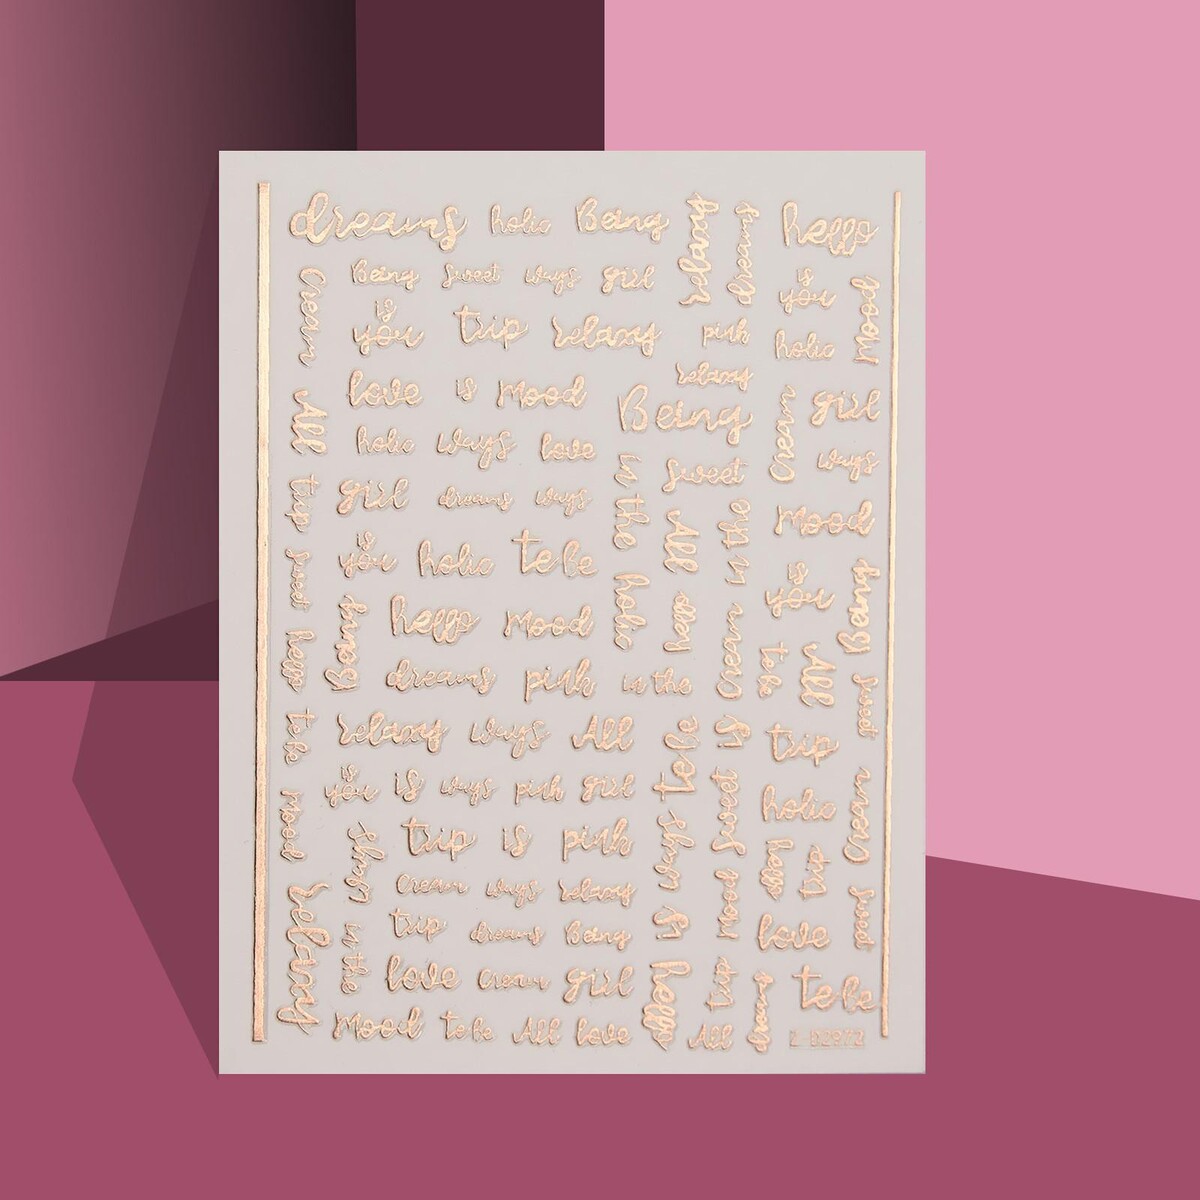 dreams holic Being relaxy dreams hello
Being sweet ways girl
Cream is you Mood
is you trip relaxy pink holic
relaxy
love is Mood Being Cream girl
All holic ways love ways
in the sweet
trip girl dreams ways All in the Mood
sweet is you holic to be is you Being
holic hello Cream
hello Being hello Mood to be All
dreams pink in the sweet
to be relaxy ways All to be is trip
is you is ways pink girl sweet holic Cream
Mood ways trip is pink ways hello trip
Cream ways relaxy Mood sweet
relaxy in the trip dreams Being is love
love Cream girl hello trip dreams to be
Mood to be All love All
Z-D2972